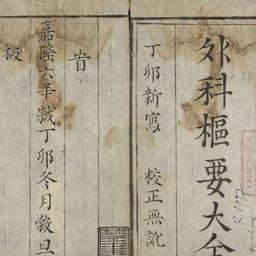 外科樞要大全
丁卯新寫 校正無訛
旹
嘉隆六年歲丁卯冬月穀旦
板